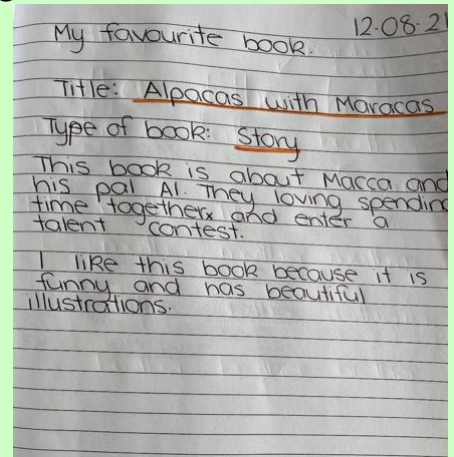 12.08.21
My favourite book.
Title: Alpacas with Maracas
Type of book: Story
This book is about Macca and
his pal Al. They loving spending
time together, and enter a
talent contest.
I like this book because it is
funny and has beautiful
illustrations.